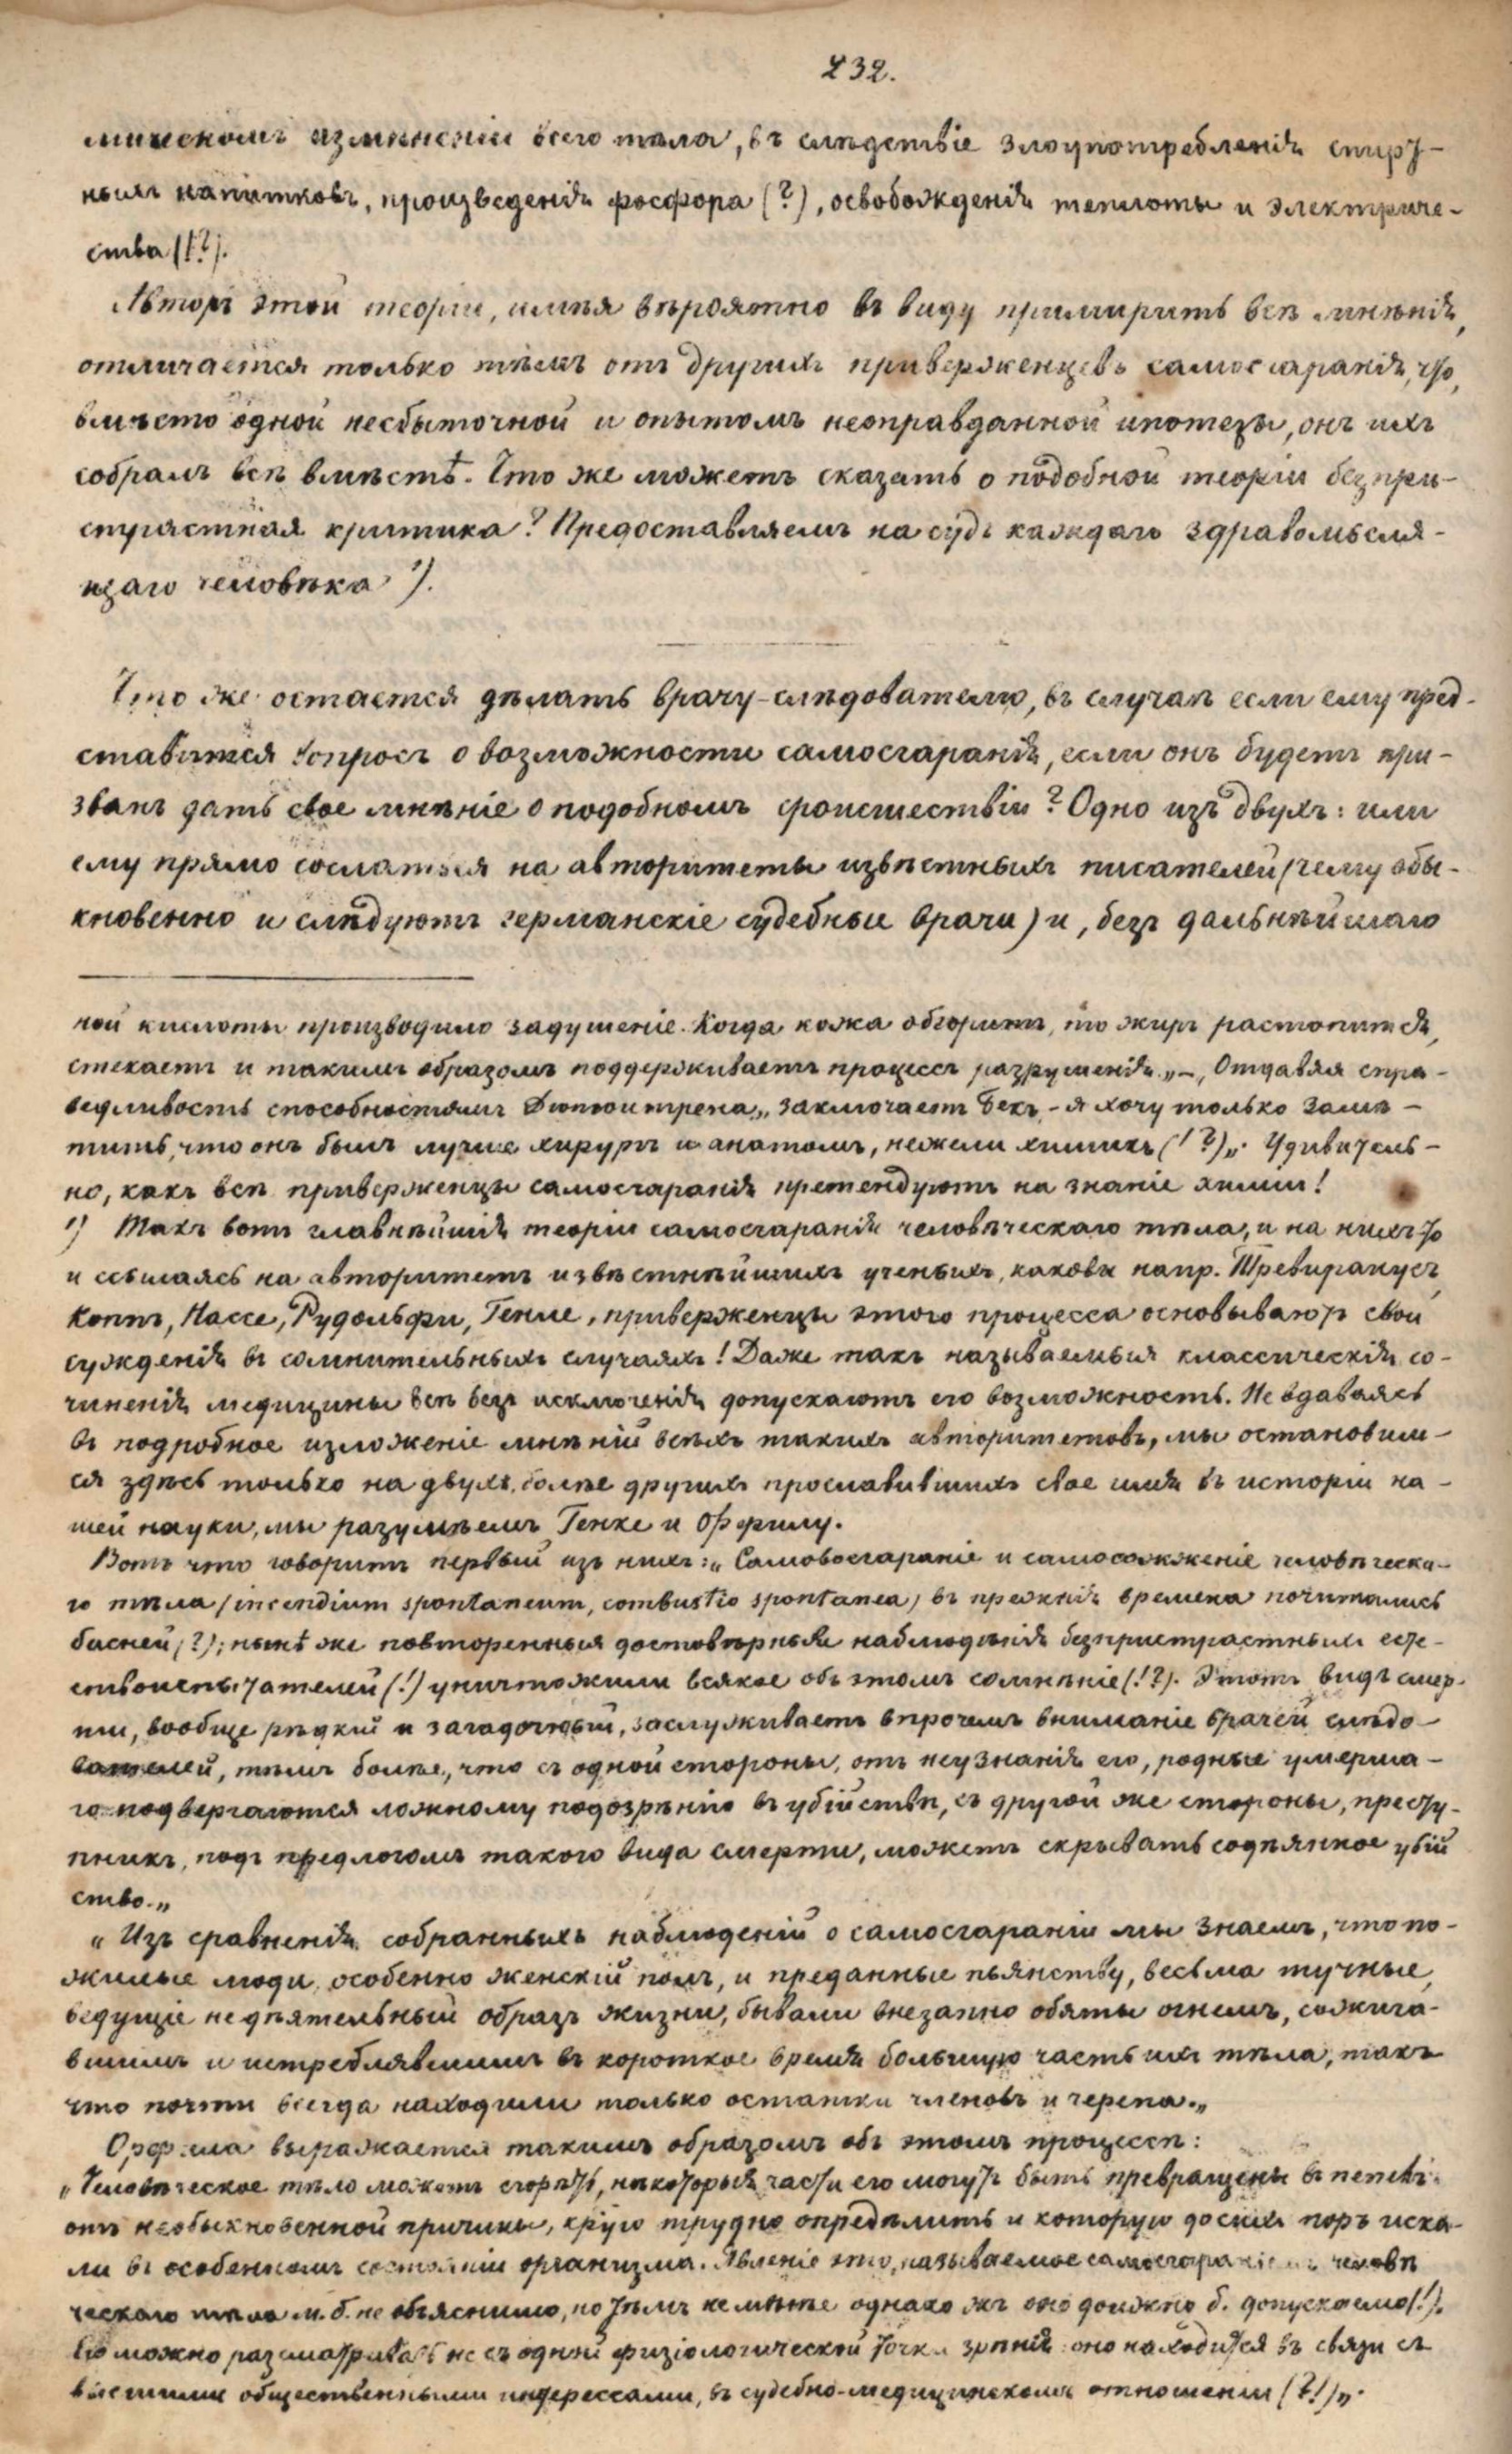 232.
мическомъ измѣненіи всего тѣла, въ слѣдствіе злоупотребленія спирт-
ныхъ напитковъ, произведенія фосфора (?), освобожденія теплоты и электриче-
ства (!?).
Авторъ этой теоріи, имѣя вѣроятно въ виду примирить всѣ мнѣнія,
отличается только тѣмъ отъ другихъ приверженцевъ самосгаранія, что,
вмѣсто одной несбыточной и опытомъ неоправданной ипотезы, онъ ихъ
собралъ всѣ вмѣстѣ. Что же можетъ сказать о подобной теоріи безпри-
страстная критика? Предоставляемъ на судъ каждаго здравомысля-
щаго человѣка ¹).
Что же остается дѣлать врачу-слѣдователю, въ случаѣ если ему пред-
ставится вопросъ о возможности самосгаранія, если онъ будетъ при-
званъ дать свое мнѣніе о подобномъ происшествіи? Одно изъ двухъ: или
ему прямо сослаться на авторитеты извѣстныхъ писателей (чему обы-
кновенно и слѣдуютъ германскіе судебные врачи) и, безъ дальнѣйшаго
ной кислоты производило задушеніе. Когда кожа обгоритъ, то жиръ растопится,
стекаетъ и такимъ образомъ поддерживаетъ процессъ разрушенія„ —, Отдавая спра-
ведливость способностямъ Дюпюитрена„ заключаетъ Бекъ, - я хочу только замѣ-
тить, что онъ былъ лучше хирургъ и анатомъ, нежели химикъ (!?)„. Удивитель-
но, какъ всѣ приверженцы самосгаранія претендуютъ на знаніе химіи!
¹) Такъ вотъ главнѣйшія теоріи самосгаранія человѣческаго тѣла, и на нихъ то
и ссылаясь на авторитетъ извѣстнѣйшихъ ученыхъ, каковы напр. Тревиранусъ,
Коппъ, Нассе, Рудольфи, Генле, приверженцы этого процесса основываютъ свои
сужденія въ сомнительныхъ случаяхъ! Даже такъ называемыя классическія со-
чиненія медицины всѣ безъ исключенія допускаютъ его возможность. Не вдаваясь
въ подробное изложеніе мнѣній всѣхъ такихъ авторитетовъ, мы остановим-
ся здѣсь только на двухъ, болѣе другихъ прославившихъ свое имя въ исторіи на-
шей науки, мы разумѣемъ Генке и Орфилу.
Вотъ что говоритъ первый изъ нихъ: „Самовосгараніе и самосожженіе человѣческа-
го тѣла (incendium spontaneum, combustio spontanea) въ прежнія времена почитались
басней (?); нынѣ же повторенныя достовѣрныя наблюденія безпристрастныхъ есте-
ствоиспытателей (!) уничтожили всякое объ этомъ сомнѣніе (!?). Этотъ видъ смер-
ти, вообще рѣдкій и загадочный, заслуживаетъ впрочемъ вниманіе врачей слѣдо-
вателей, тѣмъ болѣе, что съ одной стороны, отъ неузнанія его, родные умерша-
го подвергаются ложному подозрѣнію въ убійствѣ, съ другой же стороны, престу-
пникъ, подъ предлогомъ такого вида смерти, можетъ скрывать содѣянное убій
ство.„
„Изъ сравненія собранныхъ наблюденій о самосгараніи мы знаемъ, что по-
жилые люди, особенно женскій полъ, и преданные пьянству, весьма тучные,
ведущіе недѣятельный образъ жизни, бывали внезапно обяты огнемъ, сожига-
вшимъ и истреблявшимъ въ короткое время большую часть ихъ тѣла, такъ
что почти всегда находили только остатки членовъ и черепа.„
Орфила выражается такимъ образомъ объ этомъ процессѣ:
„Человѣческое тѣло можетъ сгорѣть, нѣкоторыя части его могутъ быть превращены въ пепелъ
отъ необыкновенной причины, крую трудно опредѣлить и которую до сихъ поръ иска-
ли въ особенномъ состояніи организма. Явленіе это, называемое самосгараніемъ человѣ
ческаго тѣла м. б. не объяснимо, но тѣмъ не менѣе однако жъ оно должно б. допускаемо (!).
Его можно разсматривать не съ одной физіологической точки зрѣнія: оно находится въ связи съ
высшими общественными интересами, въ судебно-медицинскомъ отношеніи (?!)„.